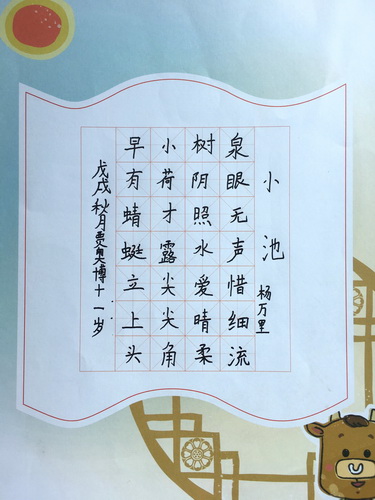 小池
杨万里
泉眼无声惜细流
树阴照水爱晴柔
小荷才露尖尖角
早有蜻蜓立上头
戊戌秋月贾昊博十一岁